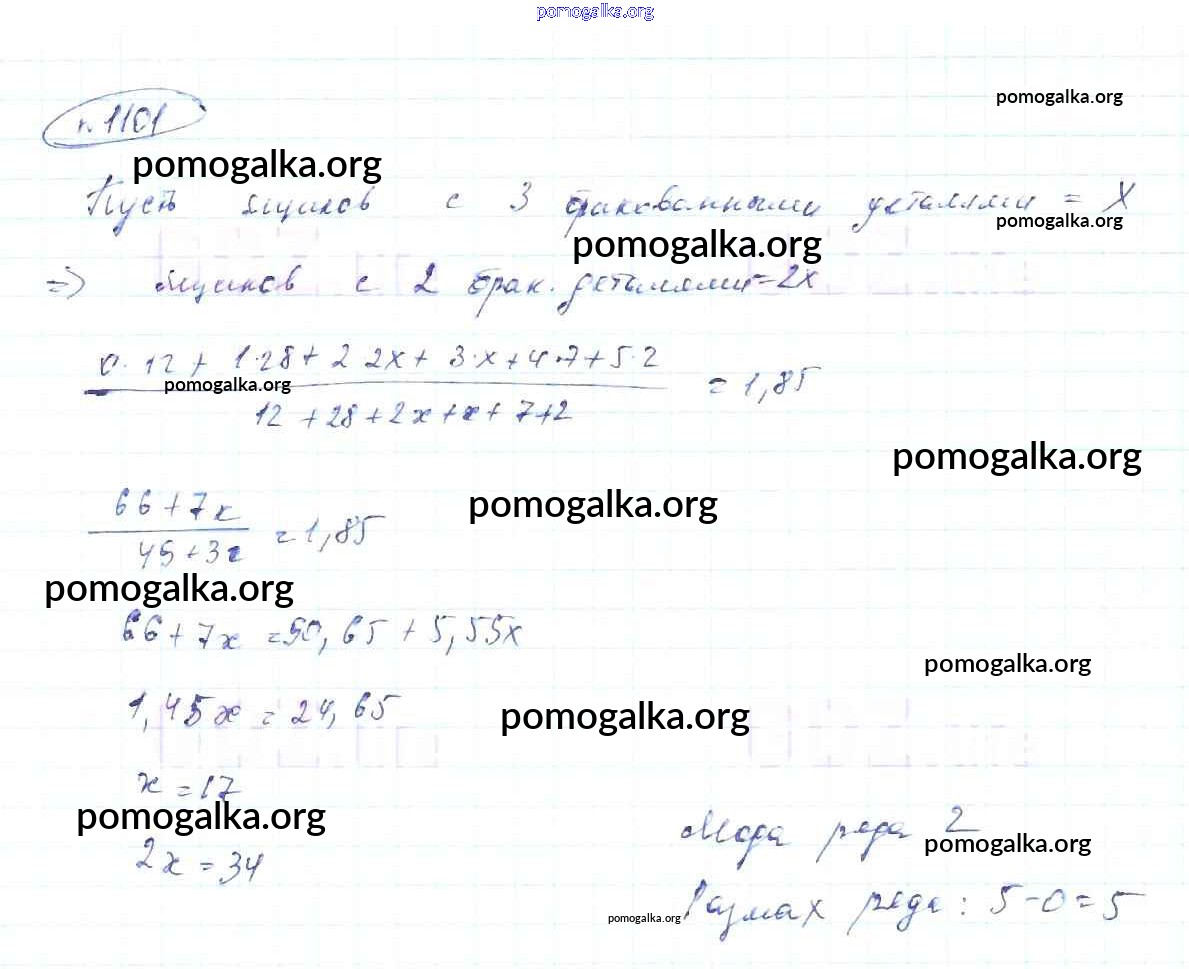 pomogalka.org
pomogalka.org
n. 1101
pomogalka.org
Пусть ящиков с 3 бракованными деталями = X
pomogalka.org
pomogalka.org
=> ящиков с 2 брак. деталями = 2x
0·12 + 1·28 + 2 2x + 3·x + 4·7 + 5·2
pomogalka.org
12 + 28 + 2x + x + 7 + 2
= 1,85
pomogalka.org
66 + 7x
pomogalka.org
49 + 3x
= 1,85
pomogalka.org
66 + 7x = 90,65 + 5,55x
pomogalka.org
1,45x = 24,65
pomogalka.org
x = 17
pomogalka.org
2x = 34
Мода ряда 2
pomogalka.org
Размах ряда: 5 - 0 = 5
pomogalka.org